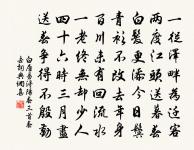 一從澤畔為遷客
兩度江頭送暮春
白髮更添今日鬢
青衫不改去年身
百川未有回流水
一老終無却少人
四十六時三月盡
送春爭得不殷勤
白居易潯陽春三首春
去詞典網集